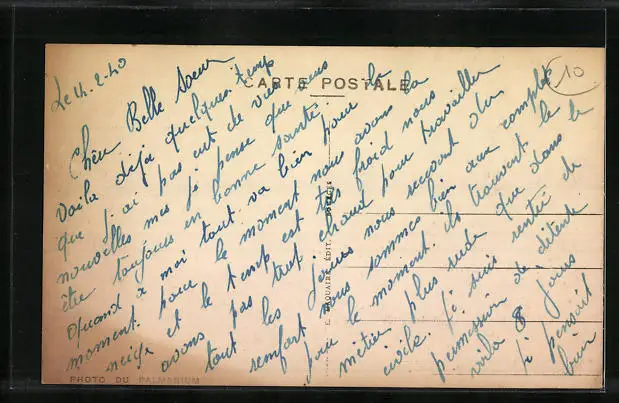 CARTE POSTALE
10
Le 14.2.40
Chère Belle Soeur
Voila déja quelques temps
que j'ai pas eut de vies
nouvelles mes je pense que vous
être toujours en bonne santé
quand a moi tout va bien pour le
moment. pour le moment nous avons la
neige et le temp est très froid nous
avons pas trop chaud pour travailler
tout les jours nous recevont du
renfort nous sommes bien au complet
pour le moment. ils trouvent le
métier plus rude que dans le
civile. Je suis rentré de
permission de détente
voila 8 jours
je pensait
bien
PHOTO DU PALMARIUM